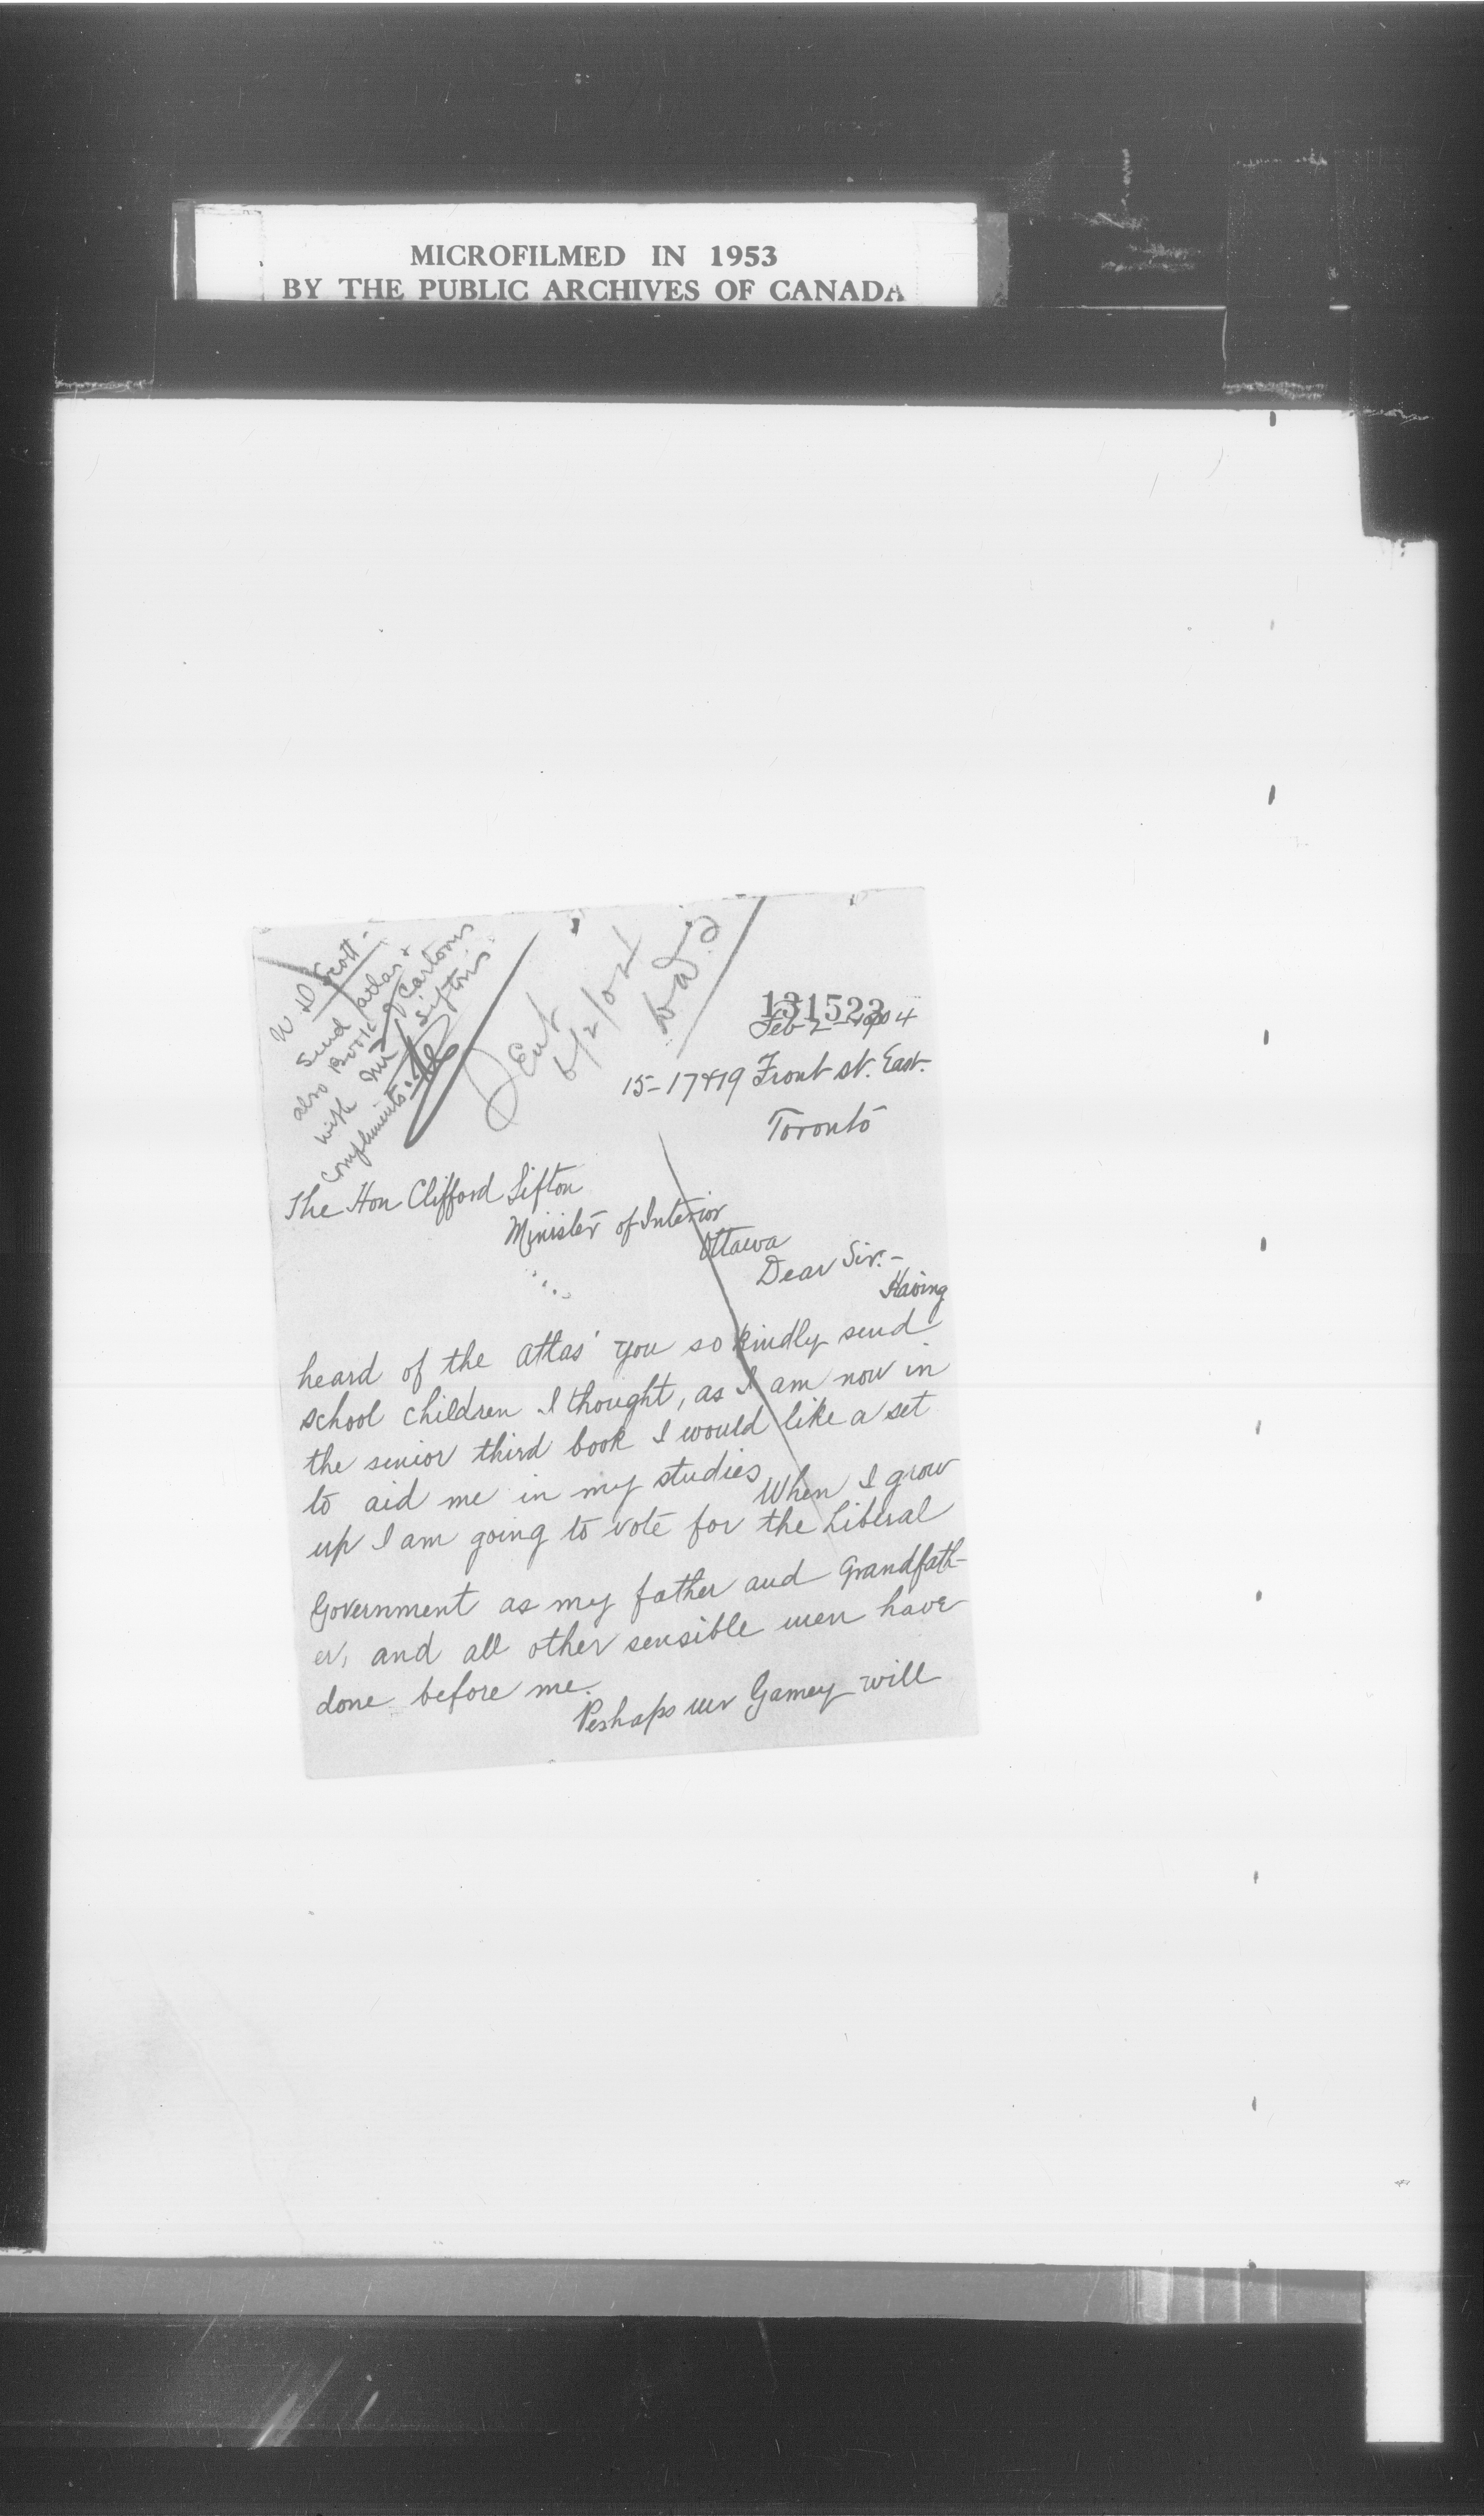 MICROFILMED IN 1953
BY THE PUBLIC ARCHIVES OF CANADA
W D Scott -
Send atlas +
also Book of Cartoons
with Mr Sifton's
Compliments.
Sent
6/2/04
131523
Feb 2 - 1904
15-17+19 Front st. East.
Toronto
The Hon Clifford Sifton
Minister of Interior
Ottawa
Dear Sir:-
Having
heard of the atlas' you so kindly send
school children I thought, as I am now in
the senior third book I would like a set
to aid me in my studies
When I grow
up I am going to vote for the Liberal
Government as my father and Grandfath-
er, and all other sensible men have
done before me.
Perhaps mr Gamey will